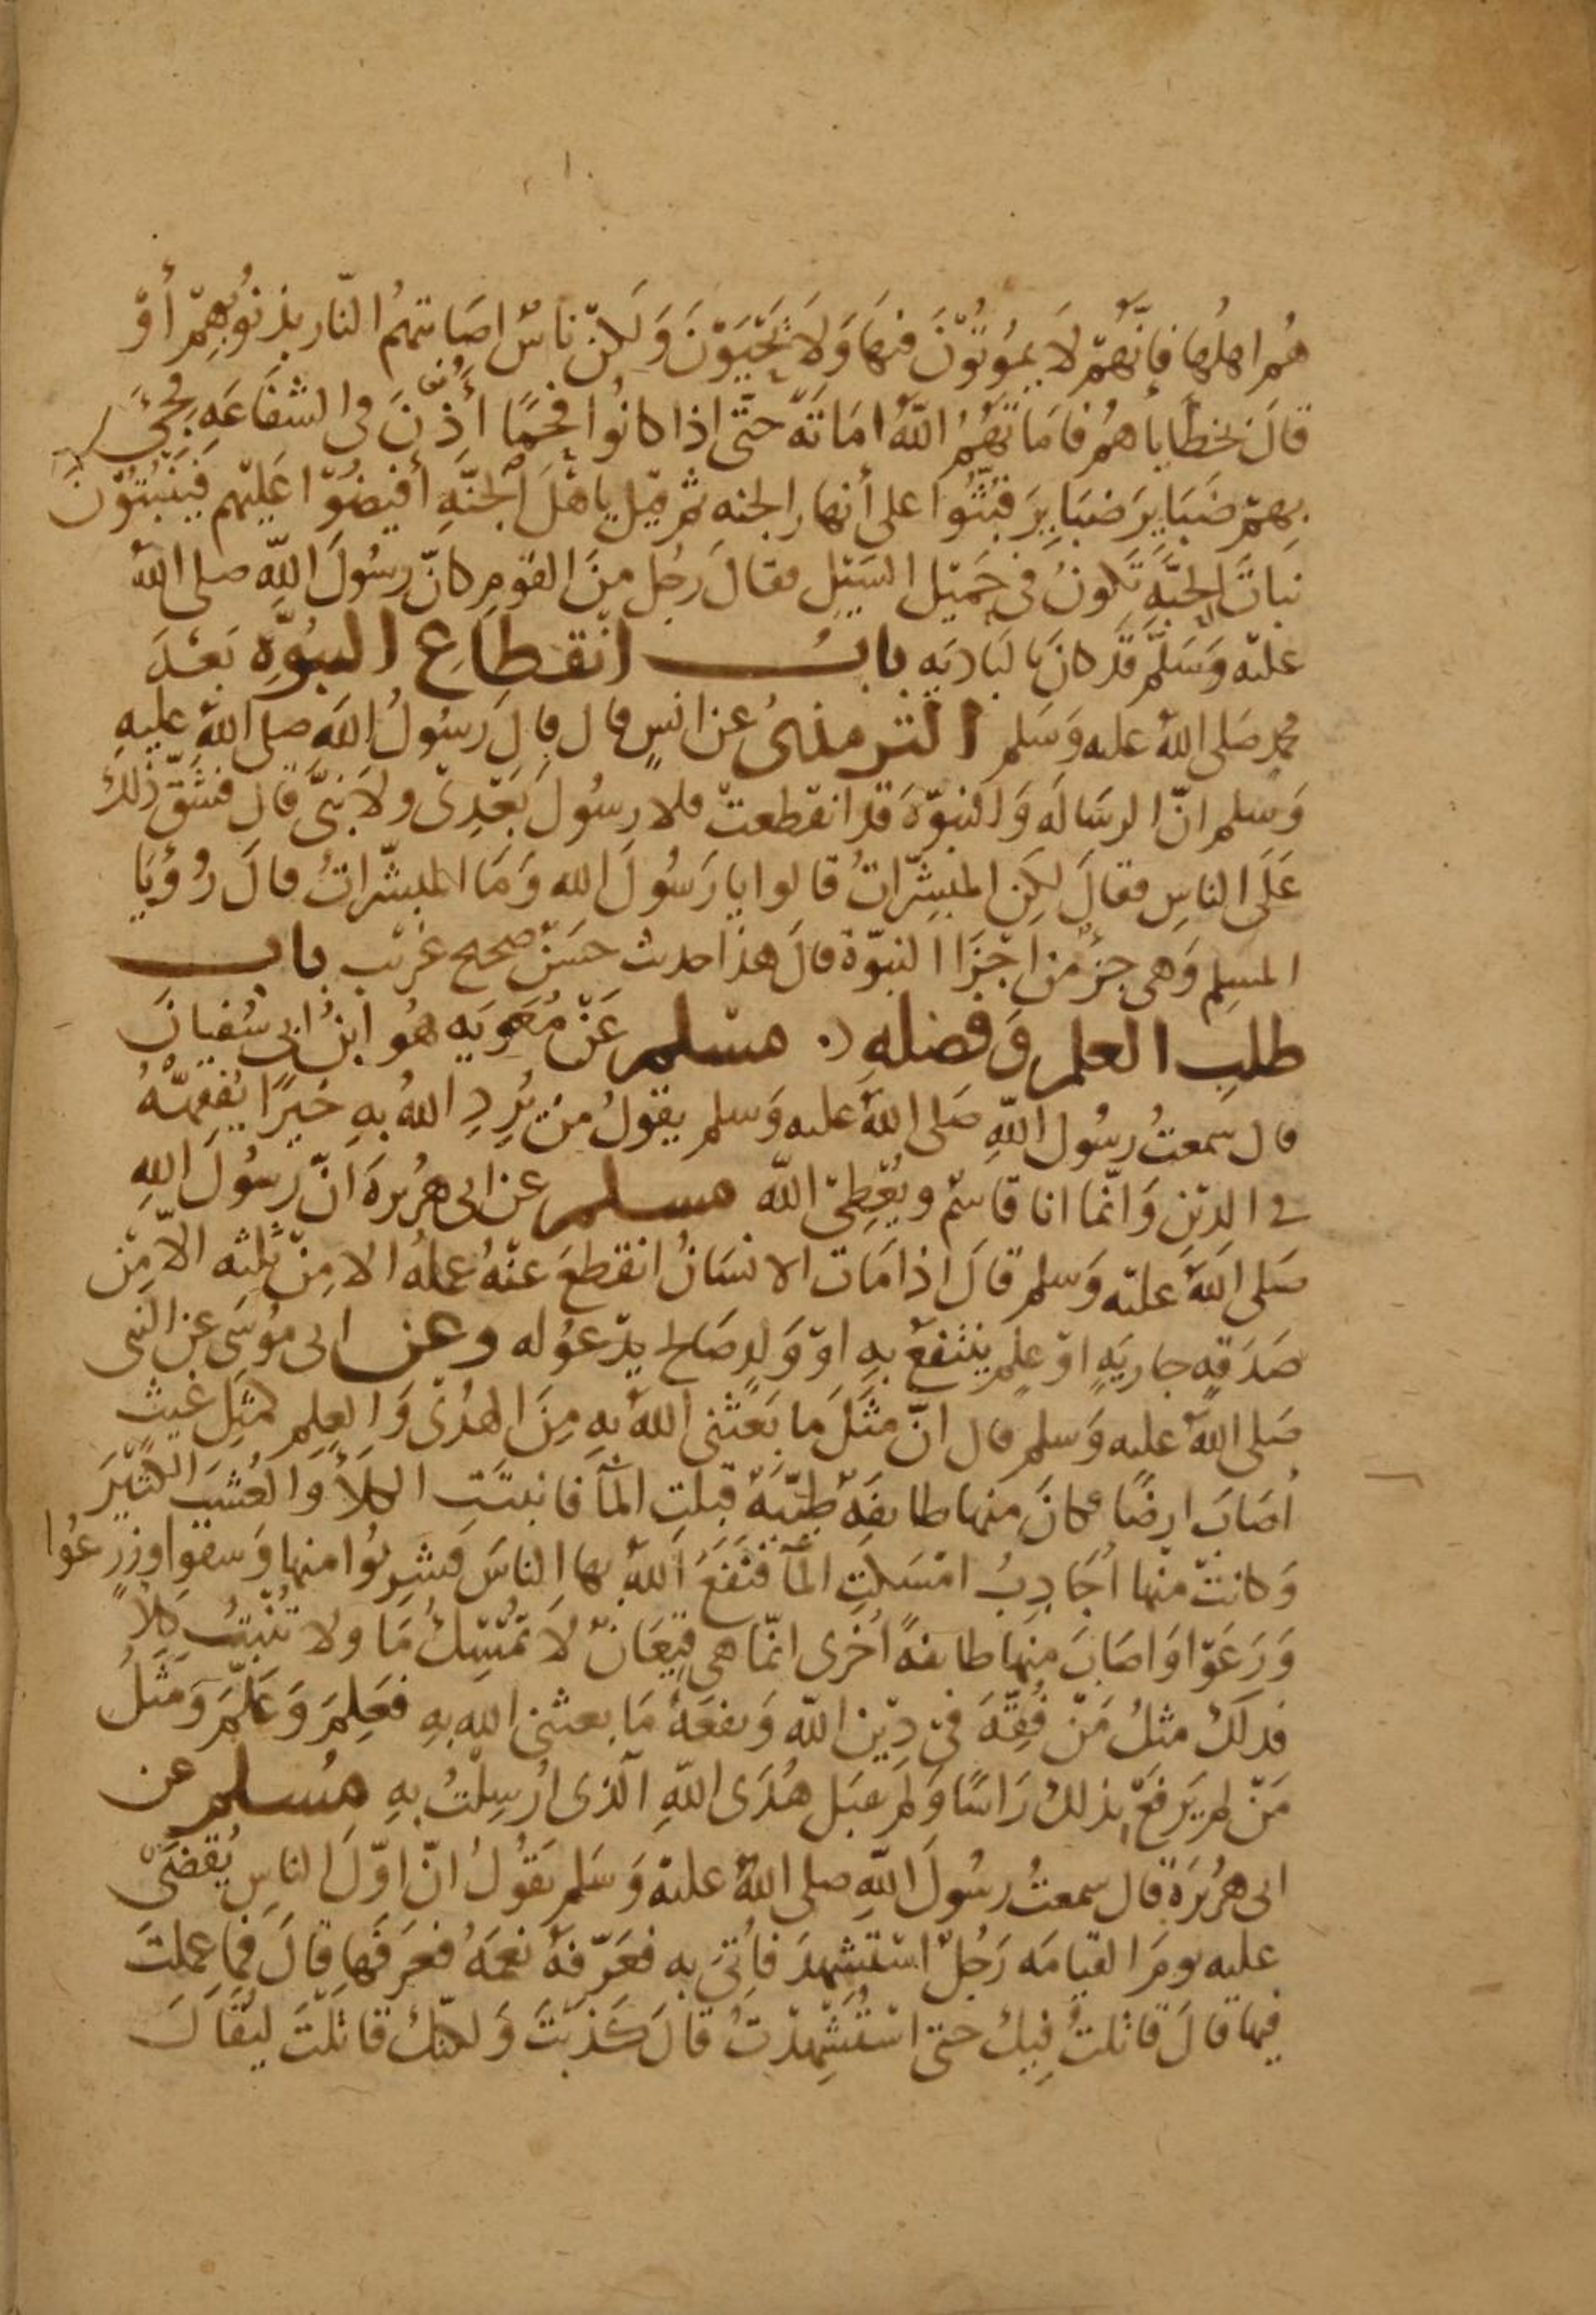 هُم اهلُها فاِنَّهُمْ لَا يموُتُوْنَ فيهَا وَلَا يَحْيَوْنَ وَلكنْ ناسٌ اصَابتهُمُ النّار بذنوُبِهِمْ أوْ
قالَ بخطَاياهُم فامَاتَهُمُ اللّهُ امَاتَةً حتَّى اذا كانوُا فحْمًا أُذِنَ فى الشفَاعَهِ فجِىَٔ
بِهِمْ ضَبَايِرَ ضبَايِرَ فَبُثُّوا على أنهار الجنه ثم قيْل ياهْلَ الجَنَّهِ أفيِضُوْا عَليْهم فيَنبُتوُنَ
نبَاتَ الحِبَّهِ تَكونُ فى حَمَيْل السَيْلِ فقالَ رجُل منَ القَومِ كانّ رسُولَ اللّهِ صلى اللهُ
عليْه وَسَلَّم قَد كانَ بالبَاديَهِ بابُ انْقطَاعِ النبُوَّهِ بَعْدَ
محمدٍ صَلى اللهُ عليه وَسَلم التّرمذىُ عن انسٍ قال قالَ رَسُولُ اللهَ صلى اللهُ عليهِ
وَسلم انّ الرسَاله وَالنبوّةَ قد انقطعتْ فلا رسُولَ بَعْدِىْ ولا نَبىَّ قال فشَقَّ ذلكَ
عَلَى الناسِ فقالَ لكِن المبشِّرَاتُ قالوا يا رَسُولَ الله وَمَا المبشّراتُ قالَ رُؤيَا
المسِلمِ وَهى جزءٌ من اجْزَا النبوّة قالَ هذا حديث حسَنٌ صحيح غريْب باب
طلبِ العلم وَفضلهِ مسْلم عَنْ مُعَويَه هُو ابْنُ ابى سُفيانَ
قال سمعتُ رسُول اللّهِ صَلى اللهُ عليه وَسلم يقولُ منْ يُرِدِ اللهُ بهِ خيْرًا يُفَقِهّهُ
فے الدّيْنِ وَانّما انا قاسِمٌ ويُعْطِىْ اللّه مسلم عن ابى هرُيرهَ انّ رَسُولَ اللهِ
صَلى اللهُ عليْه وَسلم قالَ اذا مَات الانسَانُ انقطعَ عنْهُ عملهُ الا مِنْ ثلثه الّا مِنْ
صَدَقهٍ جاريَهٍ اوْ علمٍ ينتفعُ بهِ اوْ وَلدٍ صَالح يدْعوُله وعن ابى موُسَى عن النبى
صَلى اللهُ عليه وَسلم قال انّ مثَلَ مَا بَعَثَنى اللهُ بهِ مِنَ الهُدَىْ وَالعِلمِ كمثَلِ غيثٍ
اصَابَ ارضًا فكانَ منها طايفَهٌ طيّبَهٌ قبلتِ المآ فانبتَتِ الكلأَ وَالعُشبَ الكثيْرَ
وَكانتْ منْها أجَادِبُ امْسَكتِ المآ فنَفَعَ اللهُ بها الناسَ فشرِبوُا منها وَسقوا وزرعُوا
وَرَعَوْا وَاصَابَ منها طايفهً اُخْرى انمّا هى قيْعَانٌ لا تمْسِكُ مَا ولا تُنْبِتُ كلأً
فذلكَ مثلُ مَنْ فُقِّهَ فىْ دِيْن اللّه وَنفعَهُ مَا بعثنى الله بهِ فعَلِمَ وَعَلّمَ وَمَثَلُ
مَنْ لم يَرفعْ بذلكَ رَاسًا وَلم يقبَل هُدَى اللّهِ الّذى ارُسِلْتُ بهِ مُسلم عن
ابى هرُيرَة قال سمعتُ رسُولَ اللّهِ صلى اللهُ عليْه وَسَلم يَقوُلُ انّ اوّلَ الناسِ يُقضَىْ
عليه يومَ القيامَه رَجُلٌ اسْتُشهِدَ فاُتِىَ به فعَرّفهُ نعمَهُ فعرَفهَا قالَ فمَا عملتَ
فيْها قالَ قاتلتُ فِيكَ حتى اسْتُشِهْدْتُ قالَ كذَبْتَ وَلكنّكَ قاتلْتَ ليُقالَ